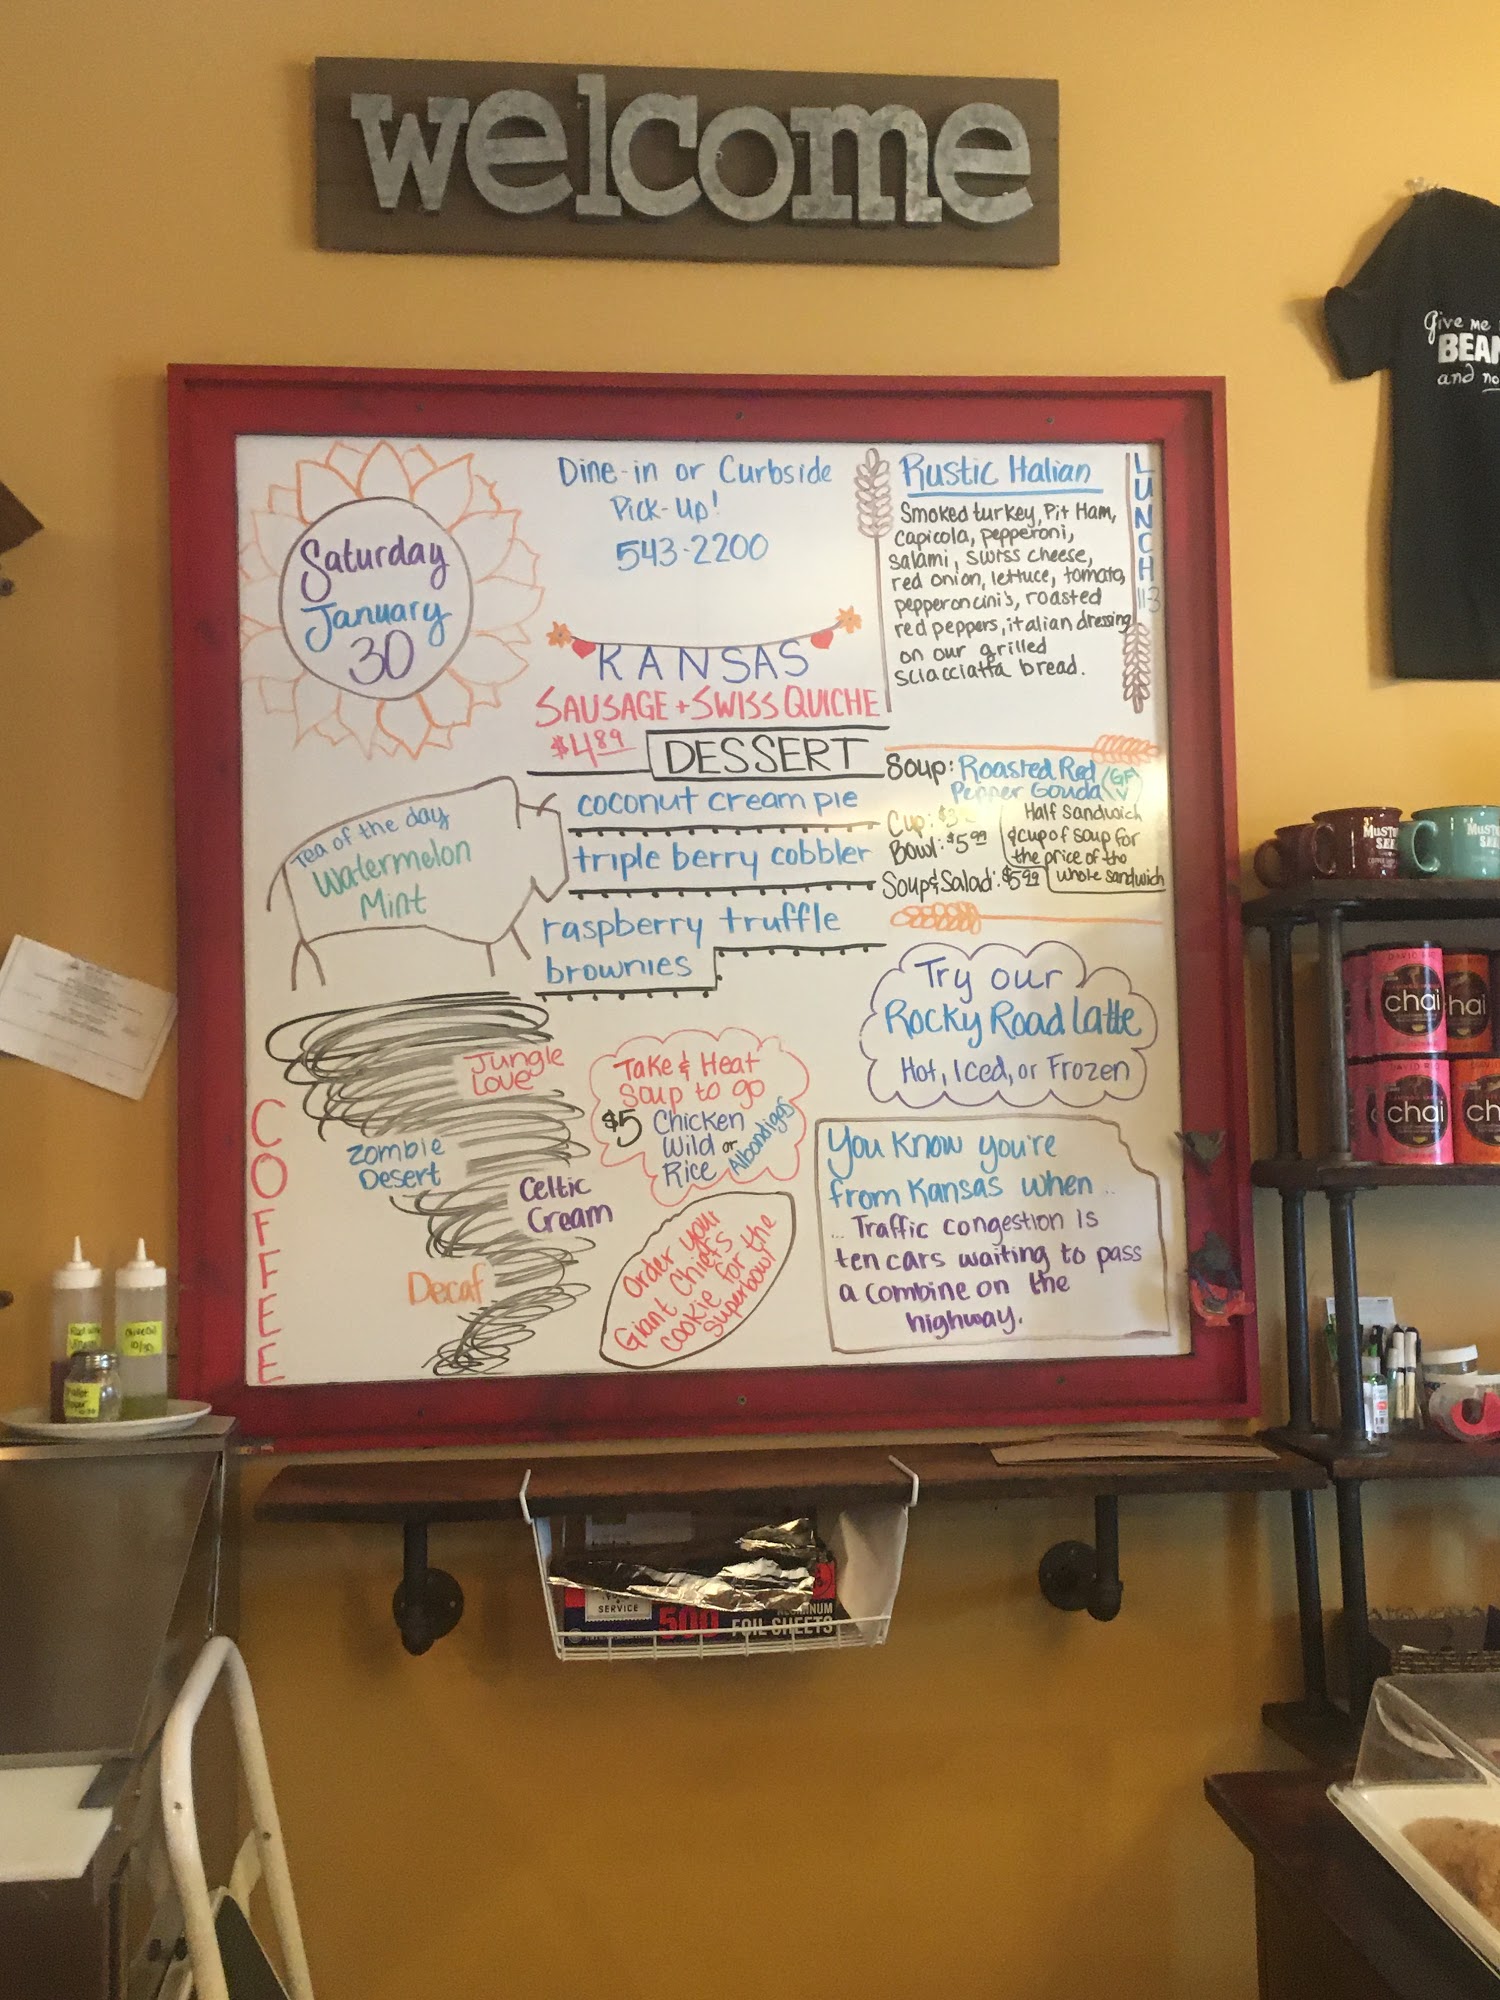 welcome
Saturday
January
30
Dine-in or Curbside
Pick-Up!
543-2200
KANSAS
SAUSAGE + SWISS QUICHE
$4.89
DESSERT
coconut cream pie
triple berry cobbler
raspberry truffle
brownies
Rustic Italian
Smoked turkey, Pit Ham,
capicola, pepperoni,
salami, swiss cheese,
red onion, lettuce, tomato,
pepperoncini's, roasted
red peppers, italian dressing
on our grilled
sciacciatta bread.
LUNCH
Soup: Roasted Red
Pepper Gouda (GF
V)
Cup:
Bowl: $5.99
Soup & Salad: $5.99
Half Sandwich
& cup of soup for
the price of the
whole sandwich
Tea of the day
Watermelon
Mint
COFFEE
Jungle
Love
Zombie
Desert
Celtic
Cream
Decaf
Take & Heat
Soup to go
$5 Chicken
Wild or
Rice
Albondigas
Order your
Giant Chiefs
cookie for the
superbowl
Try our
Rocky Road Latte
Hot, Iced, or Frozen
You know you're
from Kansas when ..
... Traffic congestion is
ten cars waiting to pass
a combine on the
highway.
Give me
BEAN
and no
MUST
SEE
DAVID RIO
chai
chai
DAVID RIO
chai
ch
SERVICE
500
FOIL SHEETS